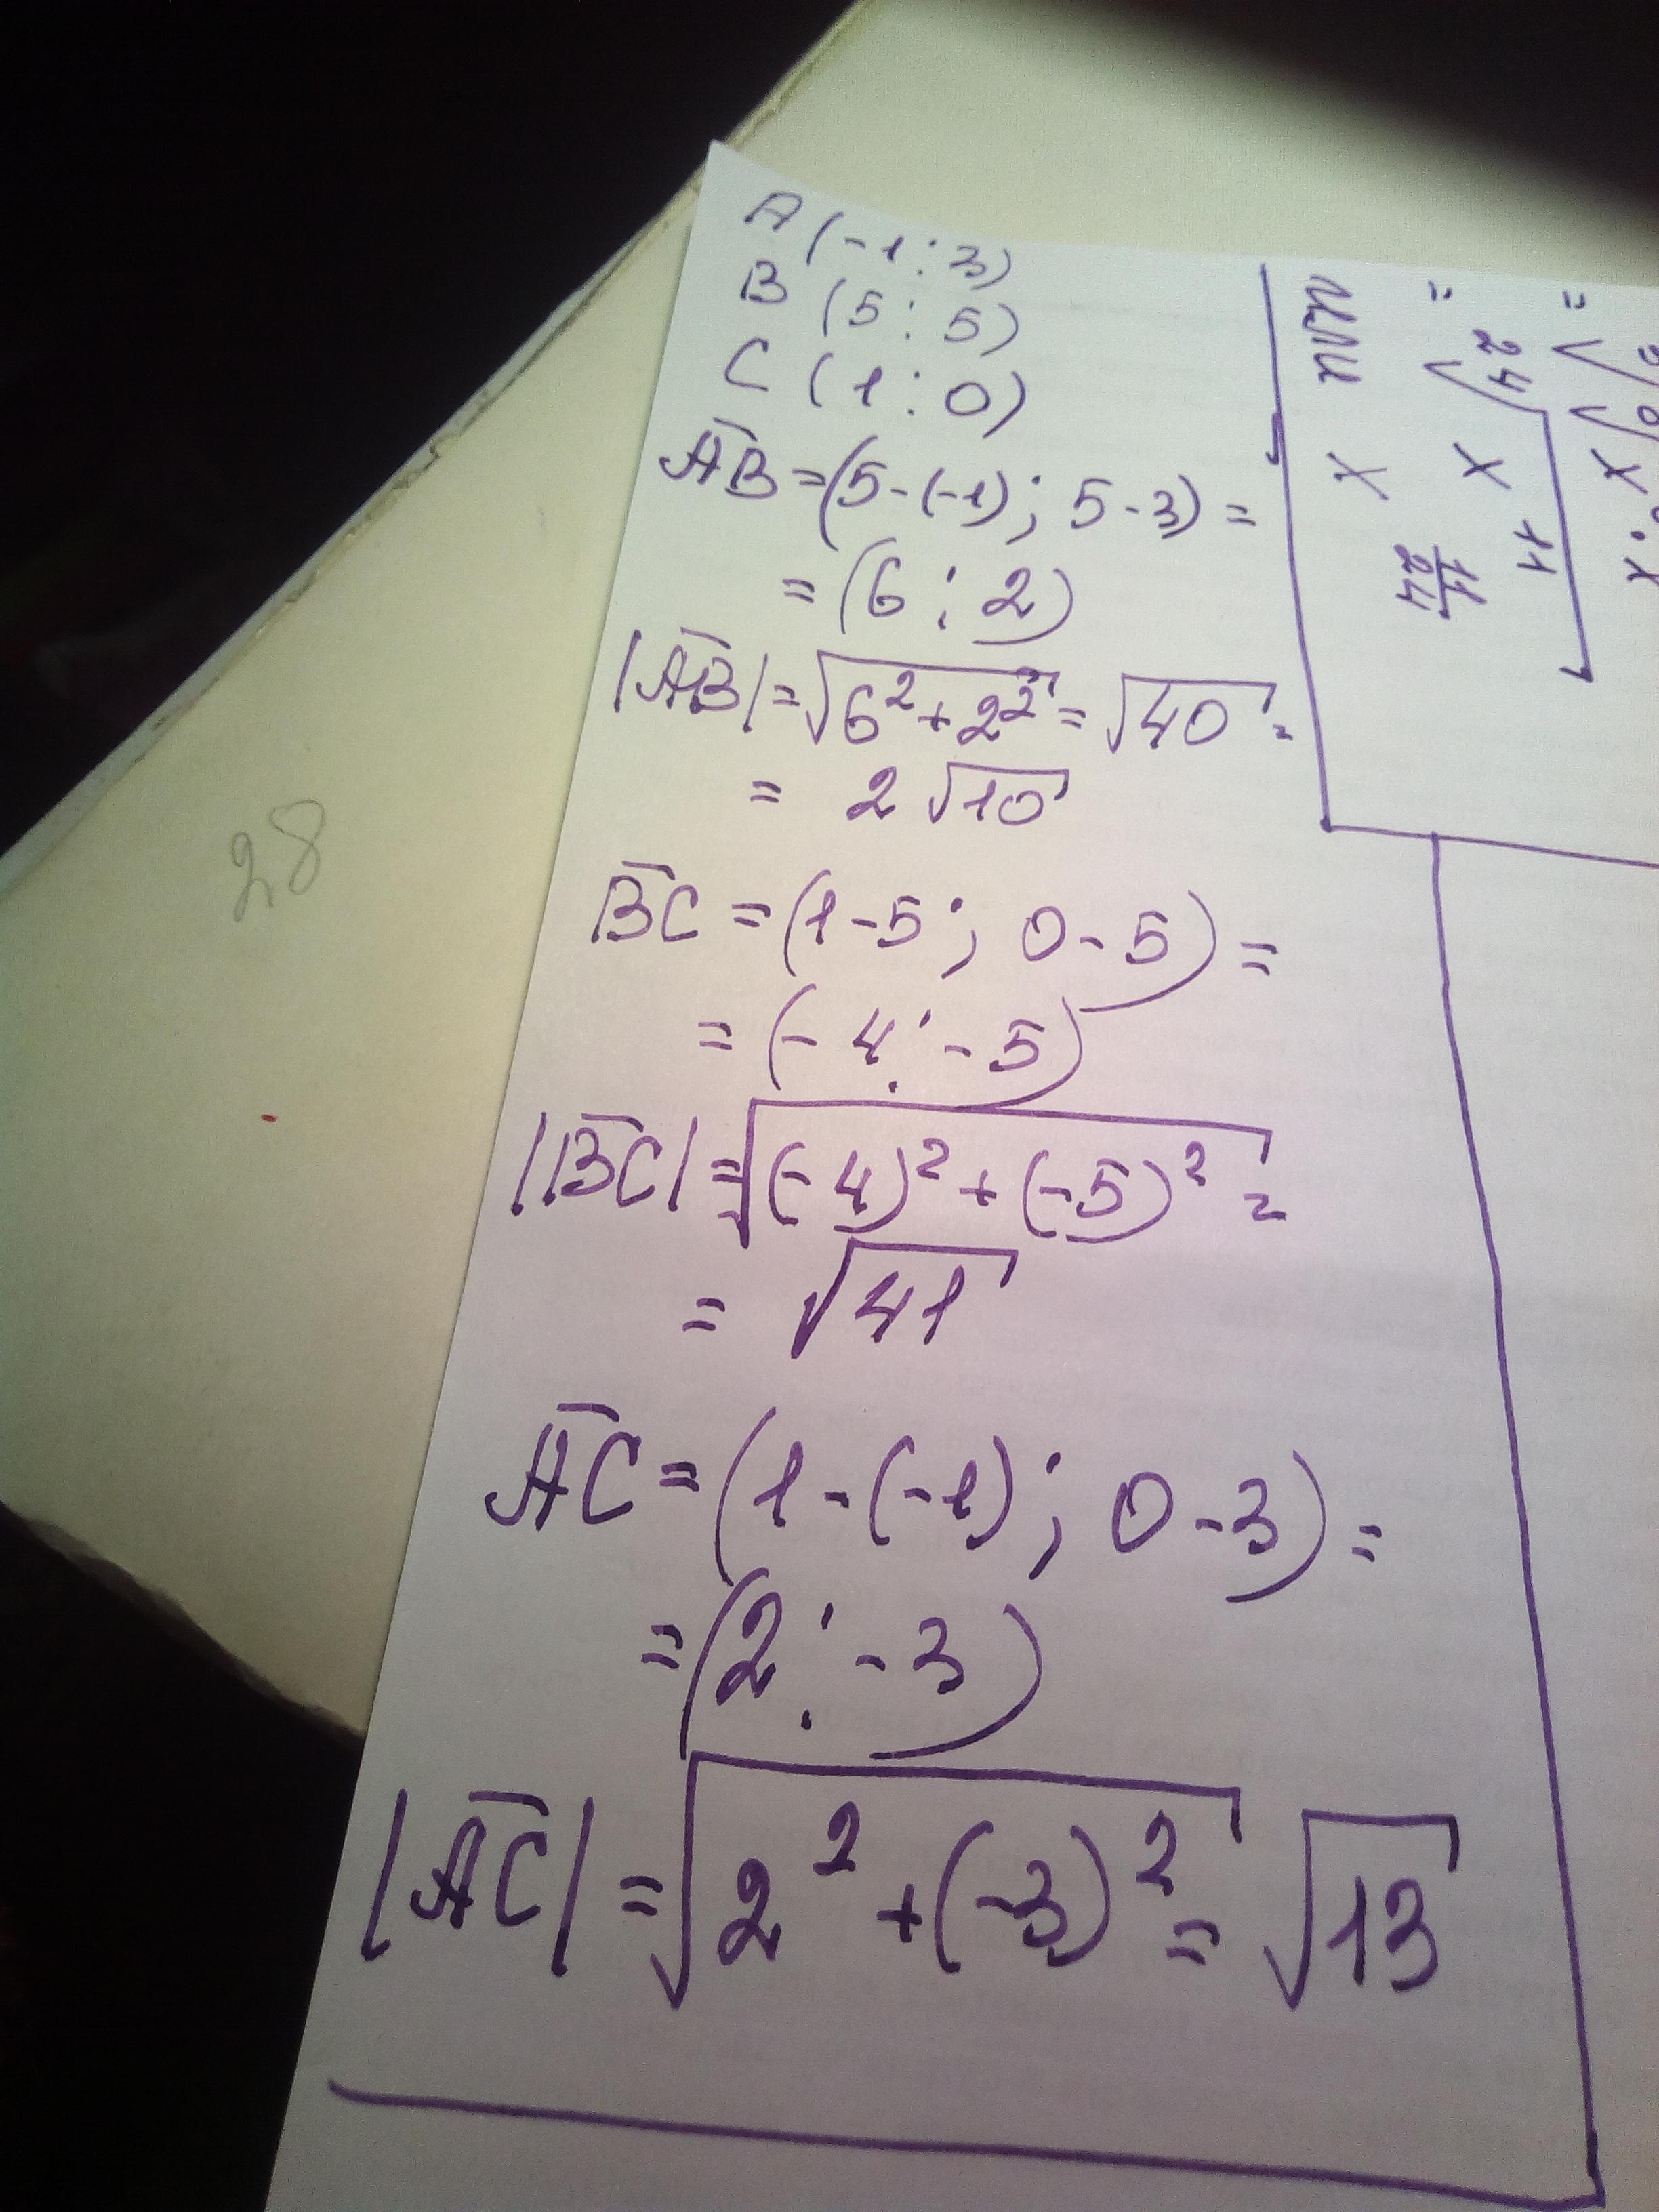 A (-1; 3)
B (5; 5)
C (1; 0)
AB = (5-(-1); 5-3) =
= (6; 2)
|AB| = √6²+2² = √40 =
= 2 √10
BC = (1-5; 0-5) =
= (-4; -5)
|BC| = √(-4)²+(-5)² =
= √41
AC = (1-(-1); 0-3) =
= (2; -3)
|AC| = √2²+(-3)² = √13
= 24√x 11
или x 11/24
28